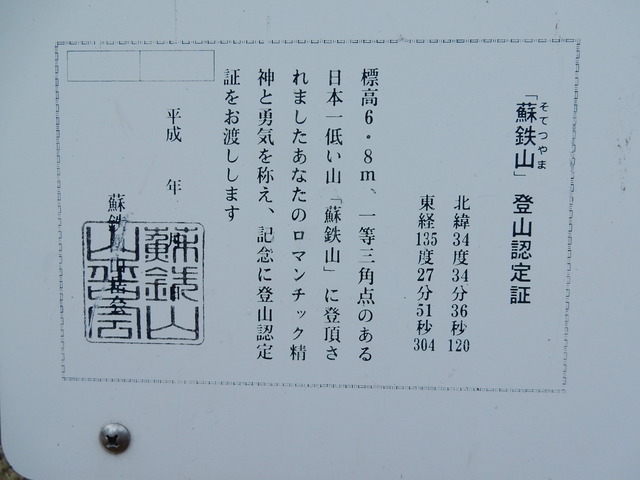 「蘇鉄山」登山認定証
そてつやま
北緯34度34分36秒120
東経135度27分51秒304
標高6・8m、一等三角点のある
日本一低い山「蘇鉄山」に登頂さ
れましたあなたのロマンチック精
神と勇気を称え、記念に登山認定
証をお渡しします
平成　年
蘇鉄山山岳会
蘇鉄山
山岳会